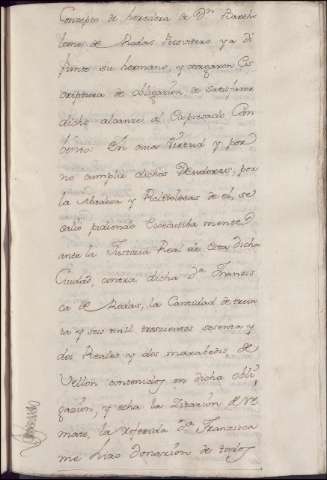 Concepto de heredera de Dn. Barth
lome de Rodas Presvitero ya di
funto su hermano, y otorgaron Es
criptura de obligazion, de satisfazer
dicho alcanze al Expresado Con
bento: En cuia virtud y por
no cumplir dichos Deudores, por
la Abadesa y Relixiosas de él, se
salio pidiendo Executiba mente
ante la Justicia Real de esta dicha
Ciudad, contra dicha Da. Francis
ca de Rodas, la Cantidad de trein
ta y seis mill trescientos sesenta y
dos Reales y dos maravedis de
Vellon contenidos en dicha obli
gazion, y echa la Zitazion de re
mate, la referida Da. Francisca
me hizo donazion de todos